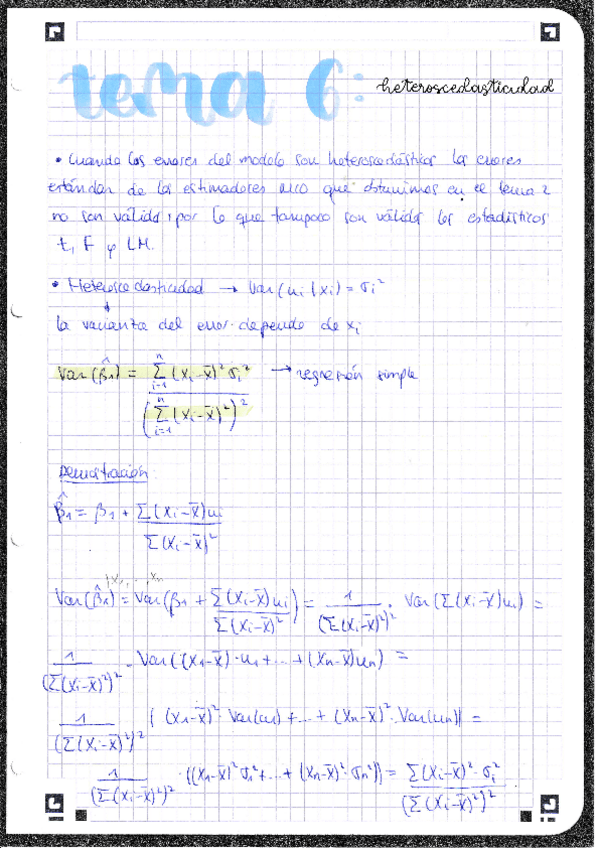 tema 6: heteroscedasticidad
• Cuando los errores del modelo son heteroscedásticos los errores
estándar de los estimadores MCO que obtuvimos en el tema 2
no son válidos, por lo que tampoco son válidos los estadísticos
t, F y LM.
• Heteroscedasticidad → Var(ui|xi) = σi²
↓
la varianza del error depende de xi
Var(β̂1) = Σ(i=1, n) (xi-x̄)² σi² / (Σ(i=1, n) (xi-x̄)²)² → regresión simple
Demostración
β̂1 = β1 + Σ(xi-x̄)ui / Σ(xi-x̄)²
|x1, ..., xn
Var(β̂1) = Var(β1 + Σ(xi-x̄)ui / Σ(xi-x̄)²) = 1 / (Σ(xi-x̄)²)² · Var(Σ(xi-x̄)ui) =
1 / (Σ(xi-x̄)²)² · Var((x1-x̄)·u1 + ... + (xn-x̄)un) =
1 / (Σ(xi-x̄)²)² [(x1-x̄)²·Var(u1) + ... + (xn-x̄)²·Var(un)] =
1 / (Σ(xi-x̄)²)² · [(x1-x̄)²σ1² + ... + (xn-x̄)²·σn²] = Σ(xi-x̄)²·σi² / (Σ(xi-x̄)²)².